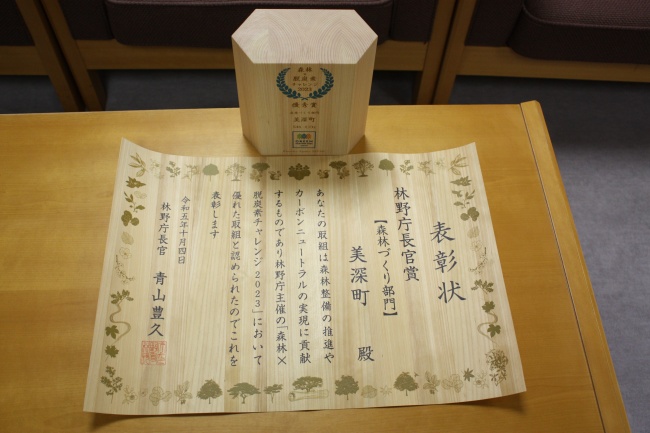 森林
×
脱炭素
チャレンジ
2023
優秀賞
森林づくり部門
美深町
表彰状
林野庁長官賞
【森林づくり部門】
美深町 殿
あなたの取組は森林整備の推進や
カーボンニュートラルの実現に貢献
するものであり林野庁主催の「森林×
脱炭素チャレンジ2023」において
優れた取組と認められたのでこれを
表彰します
令和五年十月四日
林野庁長官 青山豊久